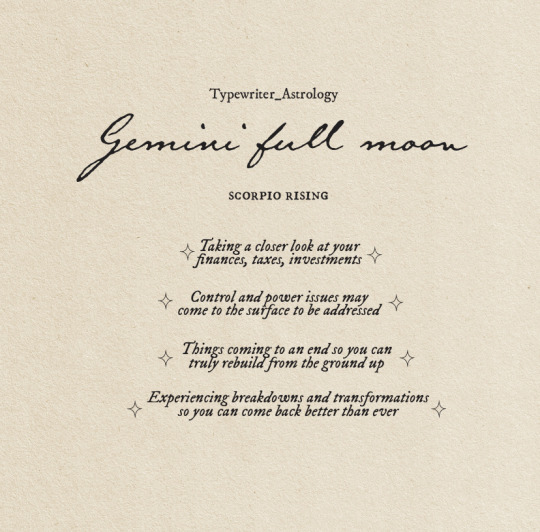 Typewriter_Astrology
Gemini full moon
SCORPIO RISING
Taking a closer look at your
finances, taxes, investments
Control and power issues may
come to the surface to be addressed
Things coming to an end so you can
truly rebuild from the ground up
Experiencing breakdowns and transformations
so you can come back better than ever